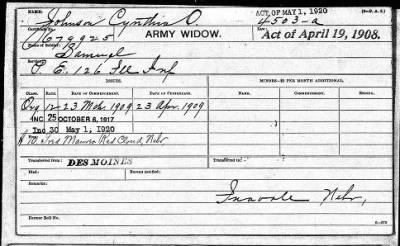 Johnson Cynthia O.
ACT OF MAY 1, 1920
Certificate No.
679925
ARMY WIDOW.
4503-a
Name of Soldier:
Samuel
Act of April 19, 1908.
Service:
P. E. 126 Ill Inf
ISSUES.
MINORS—$2 PER MONTH ADDITIONAL.
CLASS. RATE. DATE OF COMMENCEMENT. DATE OF CERTIFICATE.
Org 12 23 Mch. 1909 23 Apr. 1909
INC 25 OCTOBER 6, 1917
Inc 30 May 1, 1920
Red Cloud, Nebr
Transferred from: DES MOINES
Transferred to:
Died:
Bureau notified:
Remarks:
Inavale Nebr,
Former Roll No.